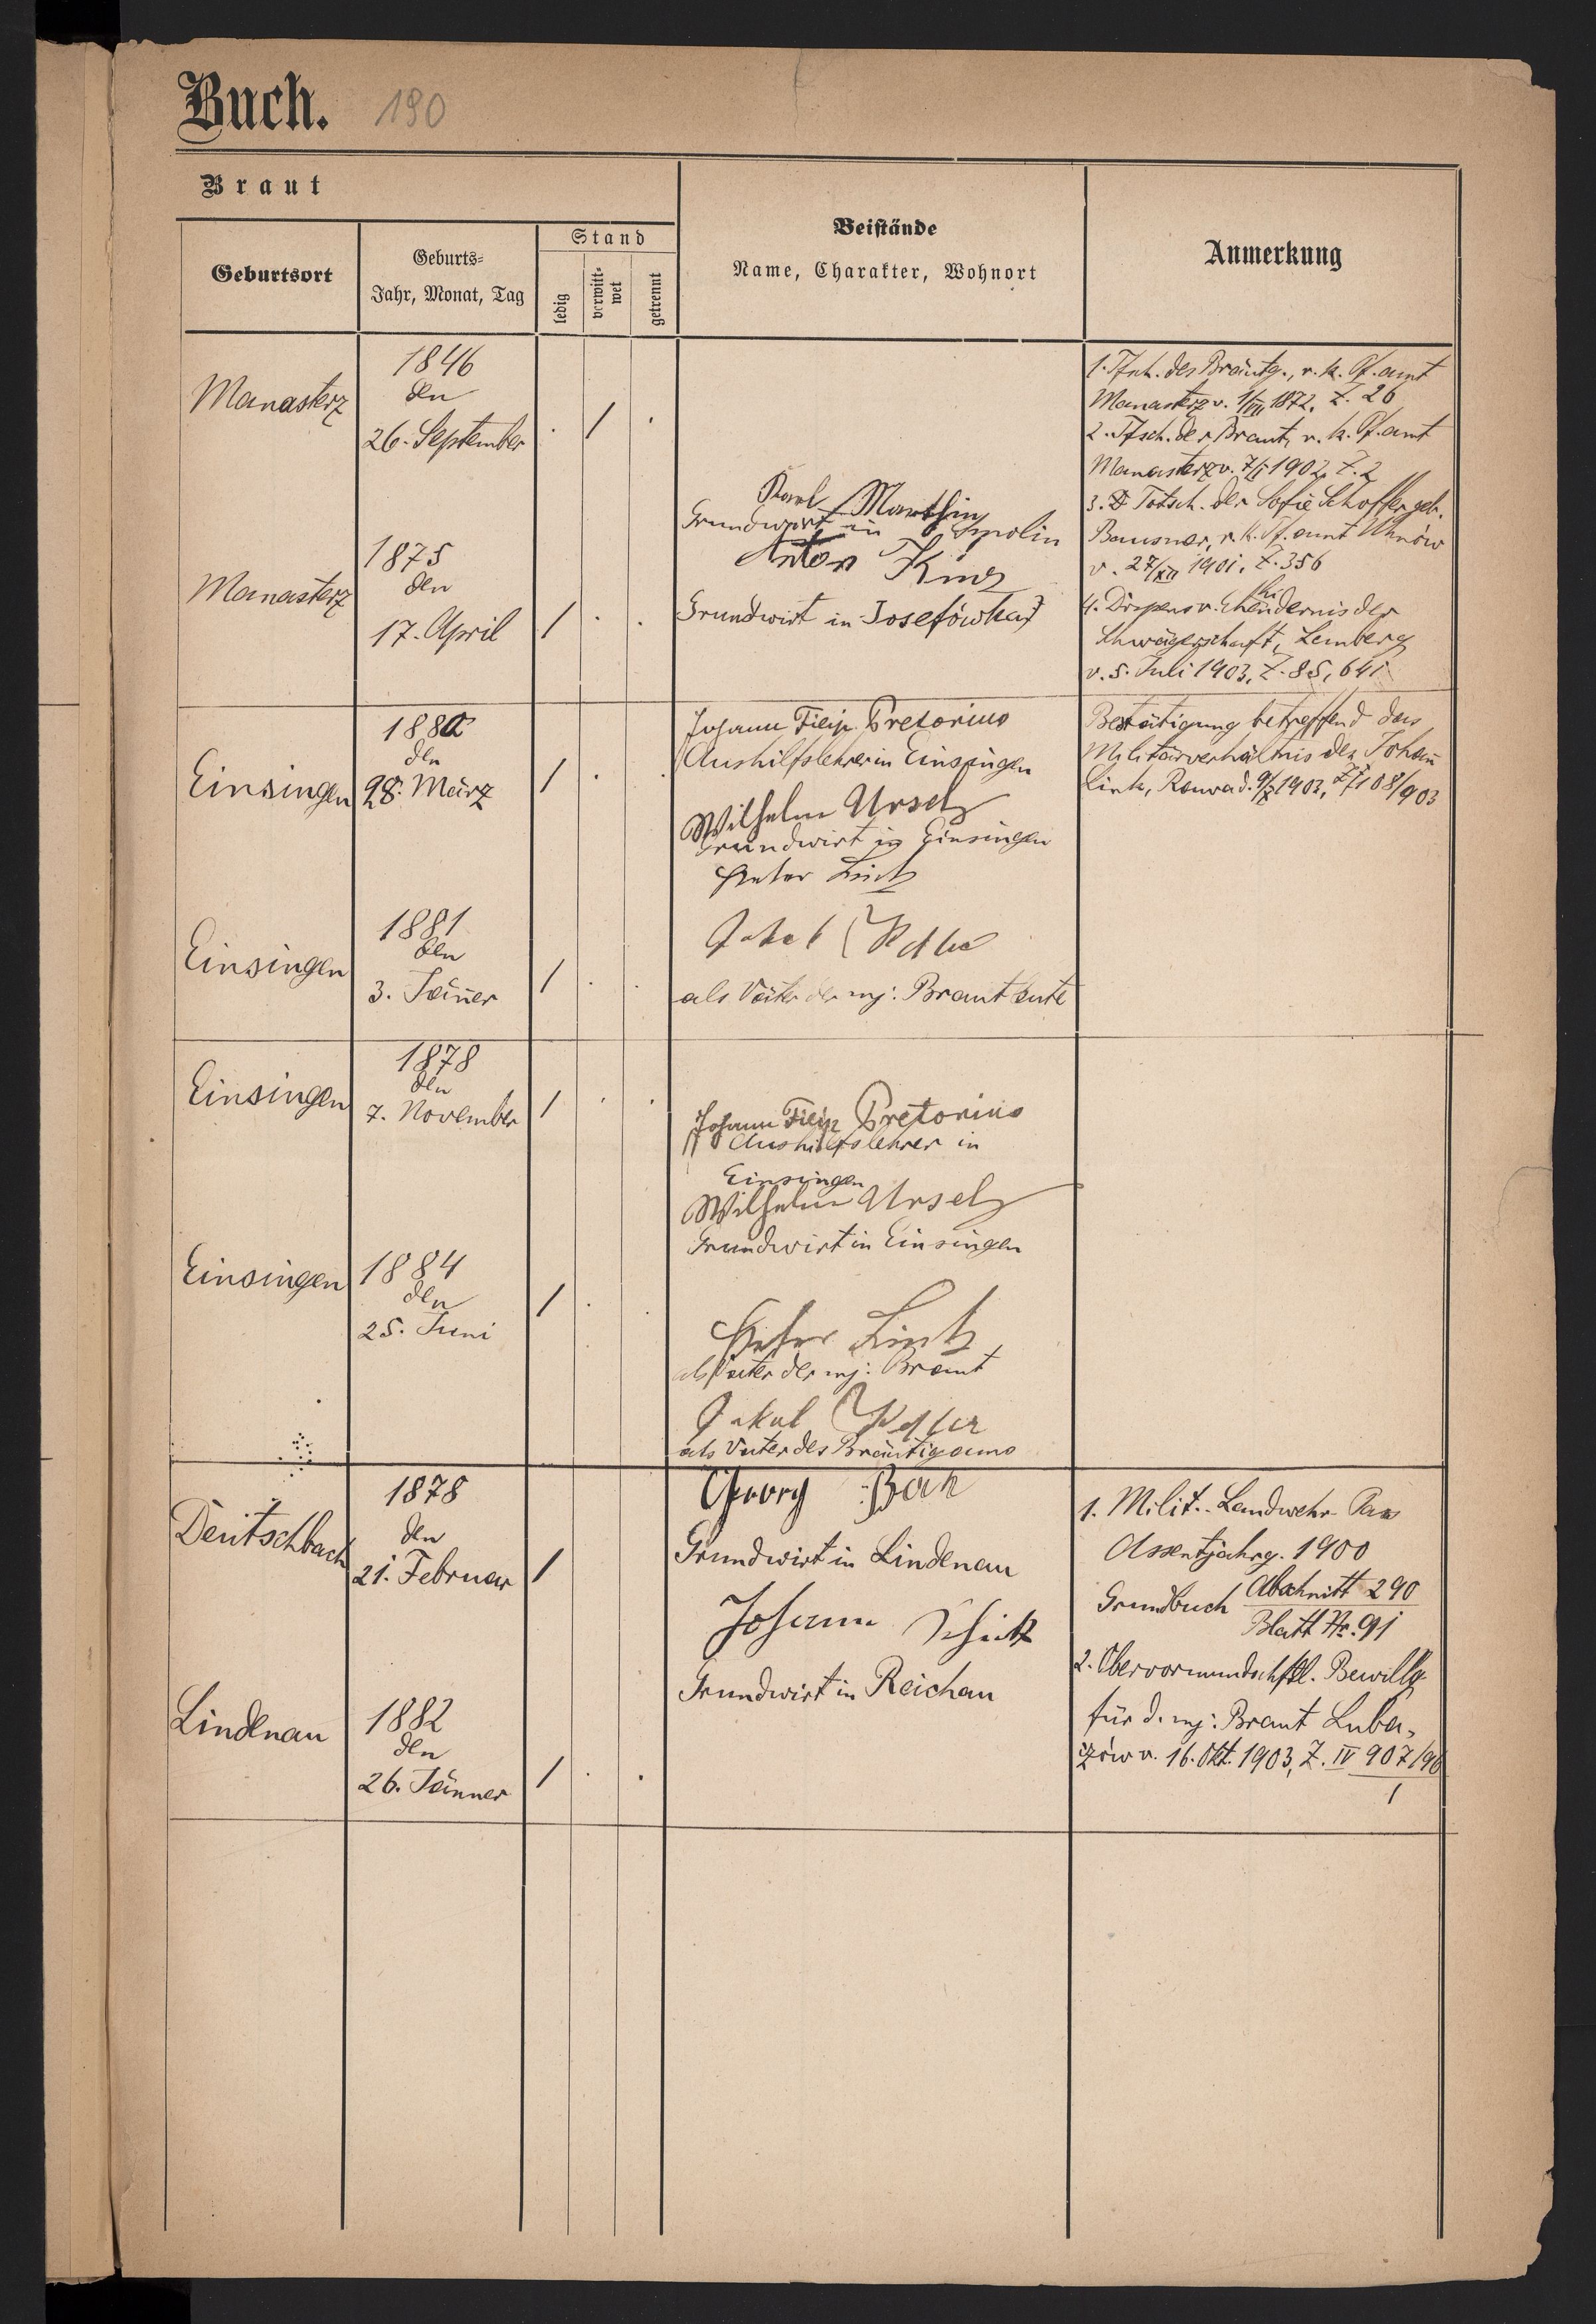 Buch. 190
Braut
Geburtsort
Geburts-
Jahr, Monat, Tag
Stand
ledig
verwitt-
wet
getrennt
Beistände
Name, Charakter, Wohnort
Anmerkung
Manasterz
1846
den
26. September
/
Manasterz
1875
den
17. April
/
Karl
Grundwirt in Smolin
Anton
Grundwirt in Josefówka
1. des Bräutg., r. k. Pf. amt
Manasterz v. 1/VII 1872, Z. 26
2. Tfsch. der Braut, r. k. Pf. amt
Manasterz v. 7/I 1902, Z. 2
3. Totsch. der Sofie Schoffer geb.
r. k. Pf. amt Uhnów
v. 27/XII 1901, Z. 356
4. Dispens v. Ehehindernis der
Schwägerschaft, Lemberg
v. 5. Juli 1903, Z. 85,641
Einsingen
1880
den
28. März
/
Johann Filip Pretorius
Aushilfslehrer in Einsingen
Wilhelm Ursel
Grundwirt in Einsingen
Peter Link
Bestätigung betreffend das
Militärverhältnis des Johann
Link, Rawa d. 9/X 1903, Z. 7108/903
Einsingen
1881
den
3. Jäner
/
Jakob
als Väter der mj: Brautleute
Einsingen
1878
den
7. November
/
Johann Filip Pretorius
Aushilfslehrer in
Einsingen
Wilhelm Ursel
Grundwirt in Einsingen
Einsingen
1884
den
25. Juni
/
Peter Link
als Vater der mj: Braut
Jakob
als Vater des Bräutigams
Deutschbach
1878
den
21. Februar
/
Georg
Grundwirt in Lindenau
Johann
Grundwirt in Reichau
1. Milit.-Landwehr-Pass
Assentjahrg. 1900
Grundbuch Abschnitt 290
Blatt Nr. 91
2. Obervormundschftl. Bewillg
für d. mj: Braut Luba-
czów v. 16. Okt. 1903, Z. IV 907/96
1
Lindenau
1882
den
26. Jänner
/